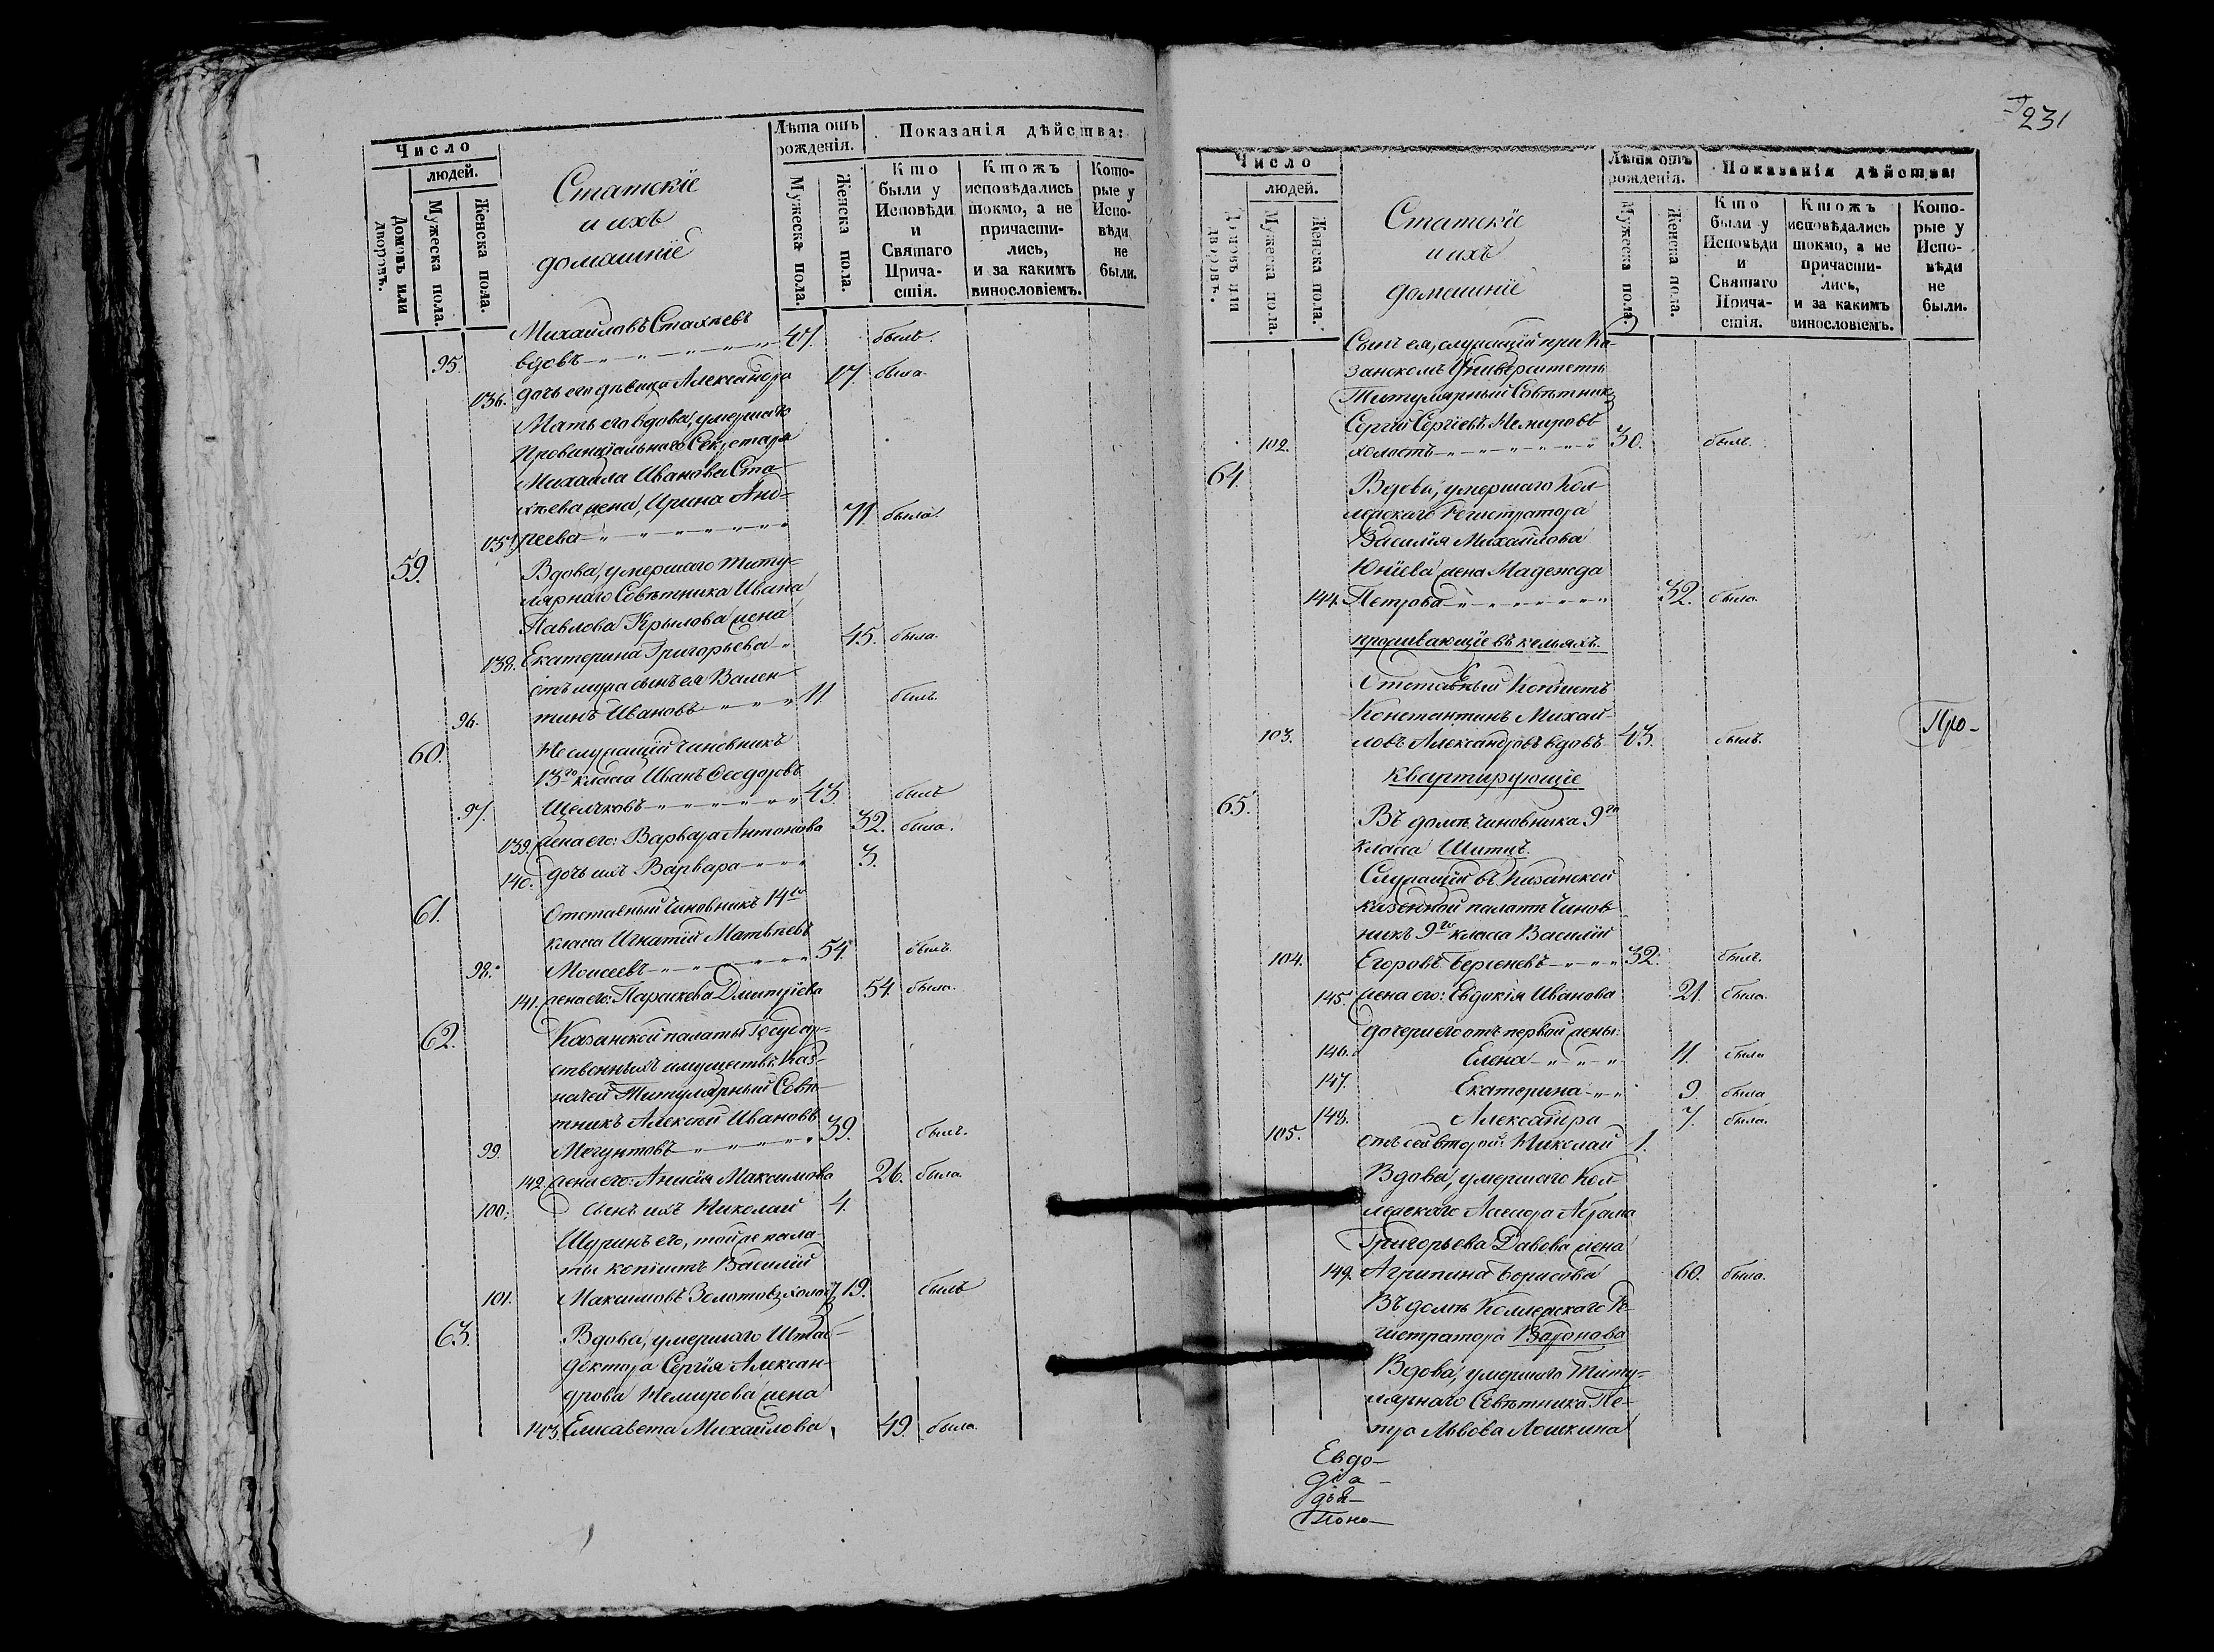 Число
людей.
Домовъ или дворовъ.
Мужеска пола.
Женска пола.
Статскіе
и ихъ
домашніе
Лѣта отъ
рожденія.
Мужеска пола.
Женска пола.
Показанія дѣйства:
Кто
были у
Исповѣди
и
Святаго
Прича-
стія.
Ктожъ
исповѣдались
токмо, а не
причасти-
лись,
и за какимъ
винословіемъ.
Кото-
рые у
Испо-
вѣди
не
были.
Михайловъ Стахѣевъ
95. вдовъ 47. былъ.
136. дочь его дѣвица Александра 17. была
Мать его вдова, умершаго
Провинціальнаго Секретаря
Михаила Иванова Ста-
хѣева жена, Ирина Анд-
137. реева 71 была.
59. Вдова, умершаго Титу-
лярнаго Совѣтника Ивана
Павлова Крылова жена
138. Екатерина Григорьева 45. была.
отъ мужа сынъ ея Вален-
96. тинъ Ивановъ 11. былъ.
60. Неслужащій чиновникъ
13го класса Иванъ Ѳеодоровъ
97. Щелчковъ 43. былъ
139. жена его: Варвара Антонова 32. была.
140. дочь ихъ Варвара 3.
61. Отставный Чиновникъ 14го
класса Игнатій Матвѣевъ
98. Моисеевъ 54. былъ.
141. жена его: Параскева Дмитріева 54. была.
62. Казанской палаты Государ-
ственныхъ имуществъ Каз-
начей Титулярный Совѣ-
тникъ Алексѣй Ивановъ
99. Могунтовъ 39. былъ.
142. жена его: Анисія Максимова 26. была.
100. сынъ ихъ Николай 4.
Шуринъ его, тойже пала-
ты копіистъ Василій
101. Максимовъ Золотовъ, холос. 19. былъ
63. Вдова, умершаго Штаб-
доктора Сергія Алексан-
дрова Немирова жена
143. Елисавета Михайлова 49. была.
231
Число
людей.
Домовъ или дворовъ.
Мужеска пола.
Женска пола.
Статскіе
и ихъ
домашніе
Лѣта отъ
рожденія.
Мужеска пола.
Женска пола.
Показанія дѣйства:
Кто
были у
Исповѣди
и
Святаго
Прича-
стія.
Ктожъ
исповѣдались
токмо, а не
причасти-
лись,
и за какимъ
винословіемъ.
Кото-
рые у
Испо-
вѣди
не
были.
Сынъ ея, служащій при Ка-
занскомъ Университетѣ
Титулярный Совѣтникъ
Сергій Сергіевъ Немировъ
102. холостъ 30. былъ.
64. Вдова, умершаго Кол-
лежскаго Регистратора
Василія Михайлова
Юніева жена Надежда
144. Петрова 32. была.
проживающіе въ кельяхъ.
Отставный Копіистъ
Константинъ Михай-
103. ловъ Александровъ вдовъ 43. былъ. Про-
Квартирующіе
65. Въ домѣ чиновника 9го
класса Шитцъ.
Служащій въ Казанской
казенной палатѣ Чинов-
никъ 9го класса Василій
104. Егоровъ Бергеневъ 32. былъ.
145. жена его: Евдокія Иванова 21. была.
дочери его отъ первой жены:
146. Елена 11. была
147. Екатерина 9. была
148. Александра 7. была.
105. отъ сей второй: Николай 1.
Вдова, умершаго Кол-
лежскаго Асесора Абрама
Григорьева Давова жена
149. Агрипина Борисова 60. была.
Въ домѣ Коллежскаго Ре-
гистратора Варонова
Вдова, умершаго Титу-
лярнаго Совѣтника Пе-
тра Львова Лошкина
Евдо-
діа-
дья-
Поно-